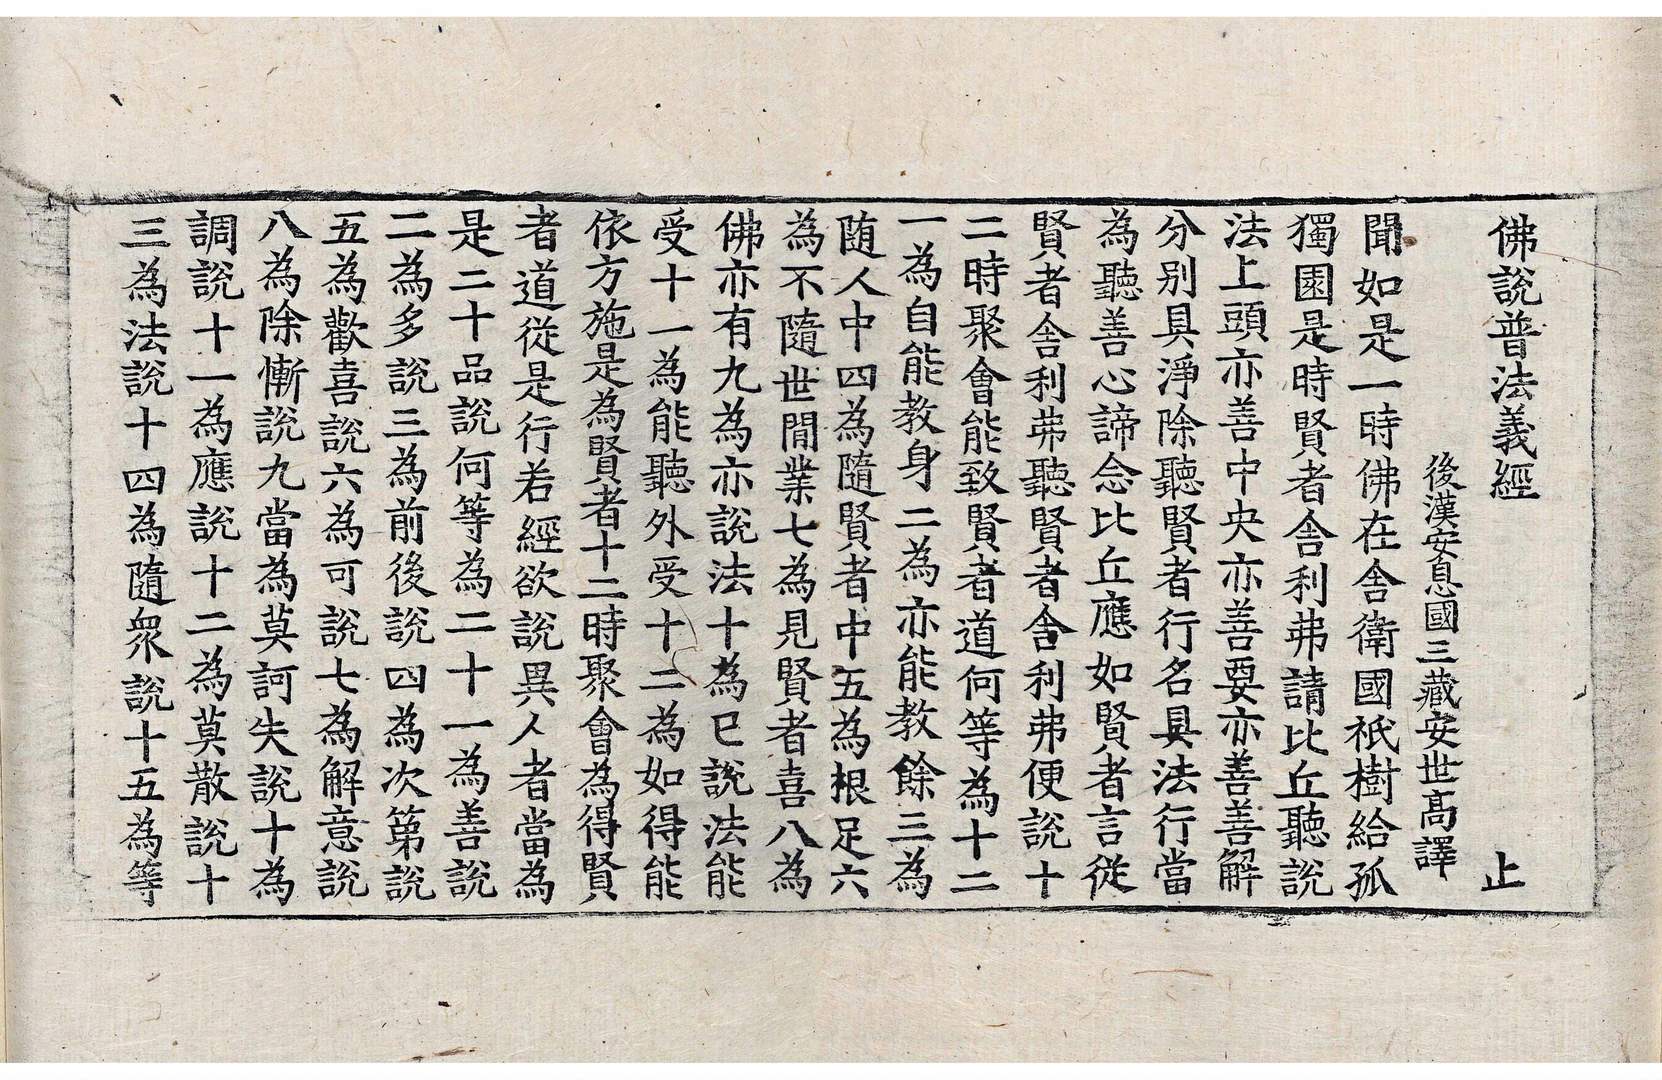 佛說普法義經 止
後漢安息國三藏安世高譯
聞如是一時佛在舍衛國祇樹給孤
獨園是時賢者舍利弗請比丘聽說
法上頭亦善中央亦善要亦善善解
分别具淨除聽賢者行名具法行當
為聽善心諦念比丘應如賢者言從
賢者舍利弗聽賢者舍利弗便說十
二時聚會能致賢者道何等為十二
一為自能教身二為亦能教餘三為
随人中四為隨賢者中五為根足六
為不隨世間業七為見賢者喜八為
佛亦有九為亦說法十為已說法能
受十一為能聽外受十二為如得能
依方施是為賢者十二時聚會為得賢
者道從是行若經欲說異人者當為
是二十品說何等為二十一為善說
二為多說三為前後說四為次第說
五為歡喜說六為可說七為解意說
八為除慚說九當為莫訶失說十為
調說十一為應說十二為莫散說十
三為法說十四為隨衆說十五為等